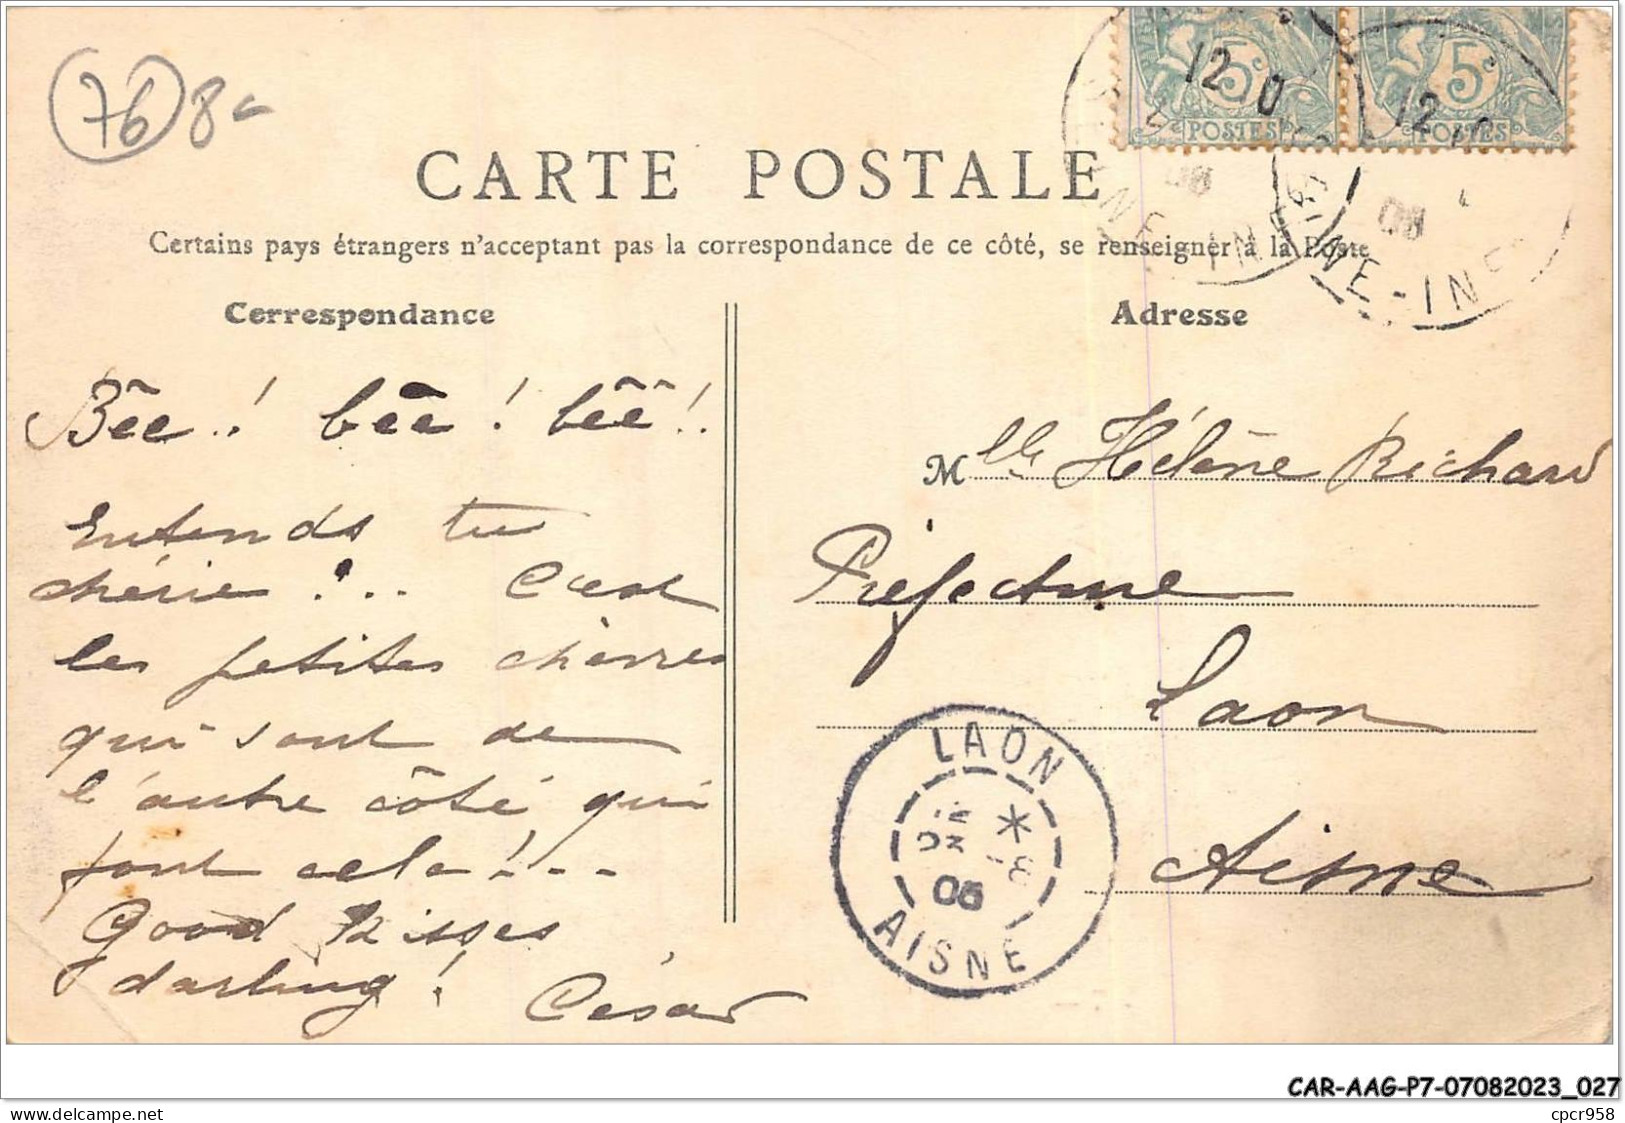 76 8
5c 5c
12 0 12
POSTES POSTES
CARTE POSTALE
08 08
INE-INF
Certains pays étrangers n'acceptant pas la correspondance de ce côté, se renseigner à la Poste
Correspondance
Adresse
Bêe! bêe! bêê!!
Entends tu
chérie?.. C'est
les petites chèvres
qui sont de
l'autre côté qui
font cela!...
Good Kisses
darling! César
Mlle Hélène Richard
Préfecture
Laon
Aisne
LAON
08
AISNE
CAR-AAG-P7-07082023_027
delcampe.net
cpcr958